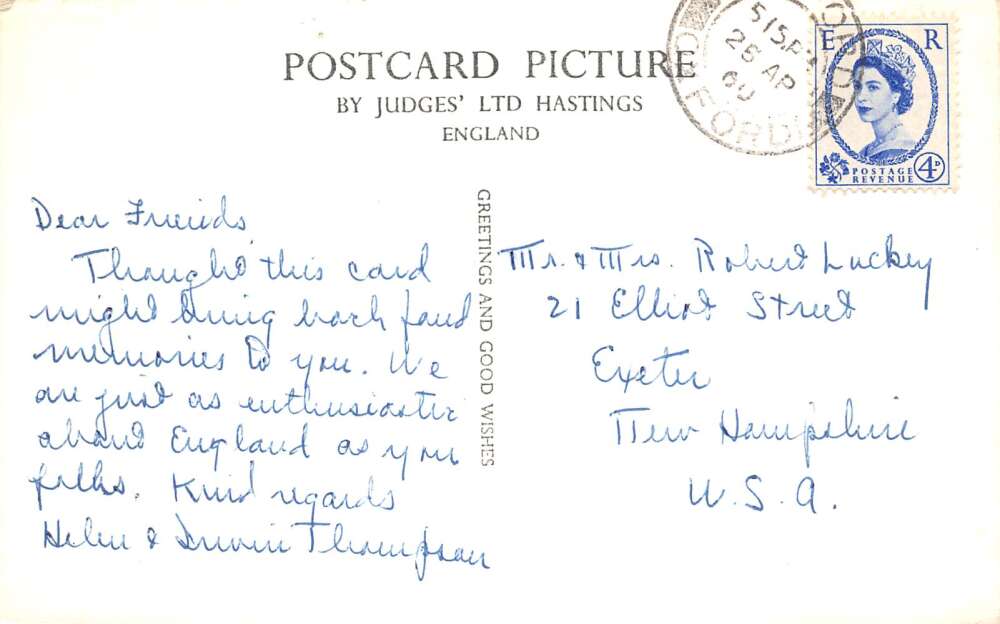 POSTCARD PICTURE
BY JUDGES' LTD HASTINGS
ENGLAND
5 15 PM
26 AP
60
E R
POSTAGE
REVENUE
4D
GREETINGS AND GOOD WISHES
Dear Friends,
Thought this card
might bring back fond
memories to you. We
are just as enthusiastic
about England as you
folks. Kind regards
Helen & Thompson
Mr. & Mrs. Robert Luckey
21 Elliot Street
Exeter
New Hampshire
U.S.A.